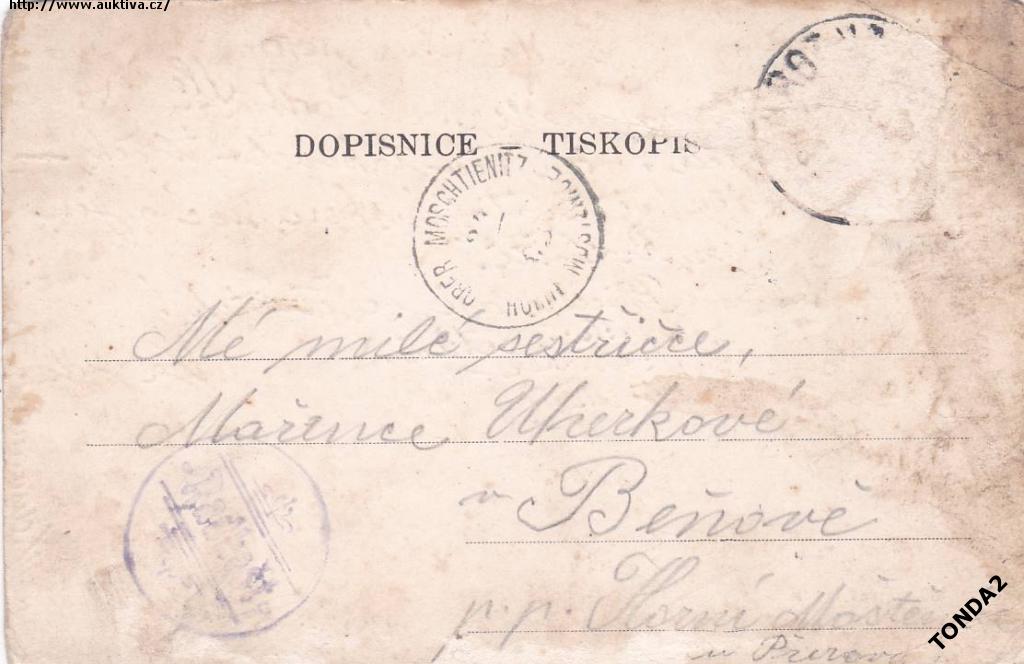 http://www.auktiva.cz/
DOPISNICE – TISKOPIS
OBER MOSCHTIENITZ
HORNÍ
Mé milé sestřičce,
Mařence Uherkové
v Beňově
p. p. Horní Moštěn
u Přerov
TONDA2